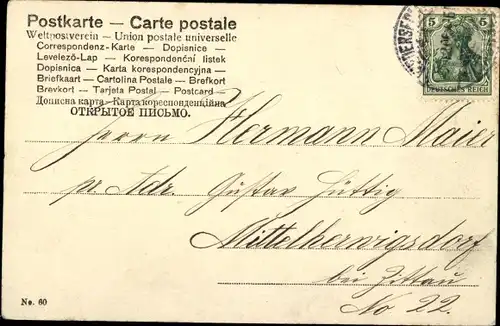 Postkarte — Carte postale
Weltpostverein — Union postale universelle
Correspondenz-Karte — Dopisnice —
Levelező-Lap — Korespondenční lístek
Dopisnica — Karta korespondencyjna —
Briefkaart — Cartolina Postale — Brefkort
Brevkort — Tarjeta Postal — Postcard —
Дописна карта — Карта кореспонденційна
ОТКРЫТОЕ ПИСЬМО.
5 5
DEUTSCHES REICH
Herrn Hermann Maier
pr Adr. Gustav Hüttig
Mittelherwigsdorf
bei Zittau
No 22.
No. 60